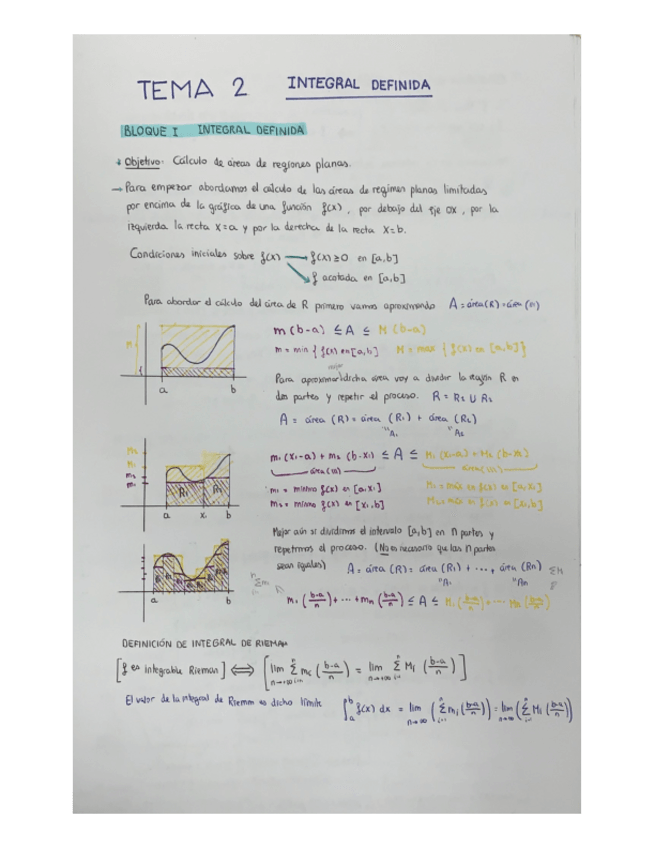 TEMA 2 INTEGRAL DEFINIDA
BLOQUE I INTEGRAL DEFINIDA
Objetivo: Cálculo de áreas de regiones planas.
→ Para empezar abordamos el cálculo de las áreas de regimen planas limitadas
por encima de la gráfica de una función f(x), por debajo del eje OX, por la
izquierda la recta x=a y por la derecha de la recta x=b.
Condiciones iniciales sobre f(x) → f(x) ≥ 0 en [a,b]
f acotada en [a,b]
Para abordar el cálculo del área de R primero vamos aproximando A = área(R)
M
a b
m (b-a) ≤ A ≤ M (b-a)
m = min { f(x) en [a,b] M = max { f(x) en [a,b] }
mejor
Para aproximar dicha área voy a dividir la región R en
dos partes y repetir el proceso. R = R₁ U R₂
A = área (R) = área (R₁) + área (R₂)
A₁ A₂
M₂
M₁
m₂
m₁
R₁ R₂
a x₁ b
m₁ (x₁-a) + m₂ (b-x₁) ≤ A ≤ M₁ (x₁-a) + M₂ (b-x₁)
m₁ = mínimo f(x) en [a,x₁]
m₂ = mínimo f(x) en [x₁,b]
Mejor aún si dividimos el intervalo [a,b] en n partes y
repetimos el proceso. (No es necesario que las n partes
sean iguales) A = área (R) = área (R₁) + ..., área (Rn)
A₁ An
a b
m₁ (b-a/n) + ... + mn (b-a/n) ≤ A ≤ M₁ (b-a/n) + ... Mn (b-a/n)
DEFINICIÓN DE INTEGRAL DE RIEMAN
[f es integrable Rieman] ⟺ [lim n→+∞ Σ i=1 n mi (b-a/n) = lim n→+∞ Σ i=1 n Mi (b-a/n)]
El valor de la integral de Riemm es dicho límite ∫ a b f(x) dx = lim n→∞ (Σ i=1 n mi (b-a/n)) = lim n→∞ (Σ i=1 n Mi (b-a/n))